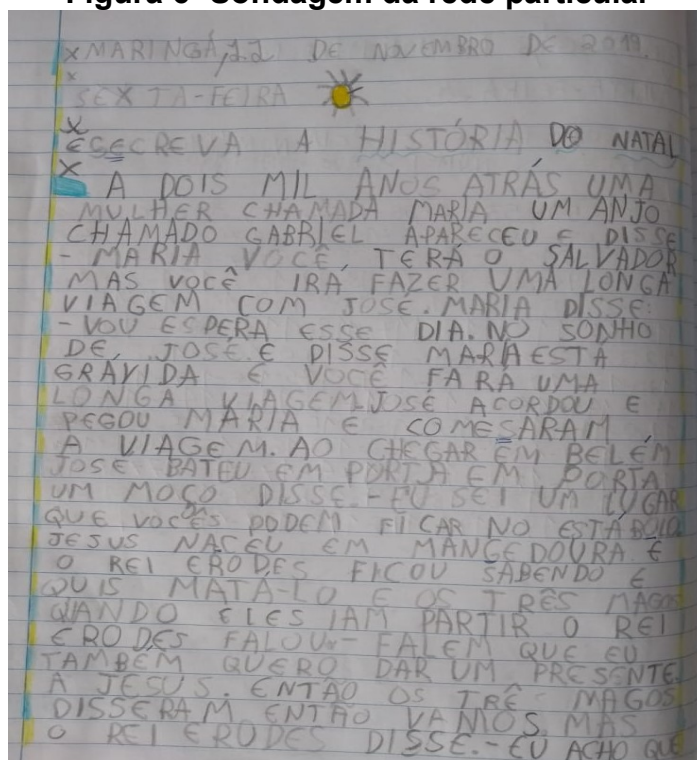 Figura 6- Sondagem da rede particular
X MARINGÁ, 22 DE NOVEMBRO DE 2019.
X
SEXTA-FEIRA
X
ESECREVA A HISTÓRIA DO NATAL
X
A DOIS MIL ANOS ATRÁS UMA
MULHER CHAMADA MARIA UM ANJO
CHAMADO GABRIEL APARECEU E DISSE
- MARIA VOCÊ, TERÁ O SALVADOR
MAS VOCÊ IRA FAZER UMA LONGA
VIAGEM COM JOSÉ. MARIA DISSE:
- VOU ESPERA ESSE DIA. NO SONHO
DE, JOSÉ E DISSE MARIA ESTÁ
GRAVIDA E VOCÊ FARÁ UMA
LONGA VIAGEM. JOSÉ ACORDOU E
PEGOU MARIA E COMESARAM
A VIAGEM. AO CHEGAR EM BELÉM
JOSÉ BATEU EM PORTA EM PORTA
UM MOÇO DISSE. - EU SEI UM LUGAR
QUE VOCÊS PODEM FICAR NO ESTÁBOLO
JESUS NACEU EM MANGEDOURA E
O REI ERODES FICOU SABENDO E
QUIS MATÁ-LO E OS TRÊS MAGOS
QUANDO ELES IAM PARTIR O REI
ERODES FALOU - FALEM QUE EU
TAMBÉM QUERO DAR UM PRESENTE
A JESUS. ENTÃO OS TRÊ MAGOS
DISSERAM ENTÃO VAMOS. MAS
O REI ERODES DISSE. - EU ACHO QUE